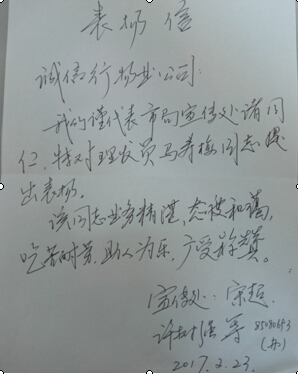 表扬信
诚信行物业公司:
我们谨代表市局宣传处诸同
仁,特对理发员马寿梅同志提
出表扬。
该同志业务精湛,态度和蔼,
吃苦耐劳,助人为乐,广受称赞。
宣传处: 宋超
等 85080693
(办)
2017.2.23.